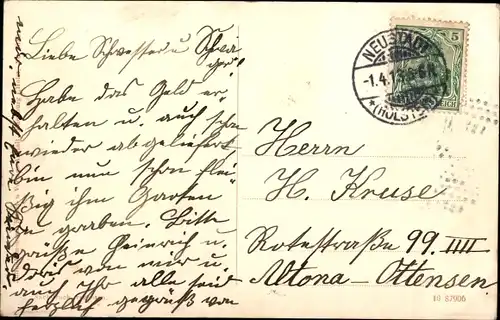 Liebe Schwester u. Schwa
ger!
Habe das Geld er-
halten u. auch schon
wieder abgeliefert,
bin nun schon flei
ßig im Garten
zu graben. Bitte
grüße Heinrich u.
Dora von mir u.
auch Ihr alle seid
herzlich gegrüßt von
NEUSTADT
-1.4.1
* (HOLSTEIN)
5
REICH
Herrn
H. Kruse
Rotestraße 99 IIII
Altona-Ottensen
10 67906